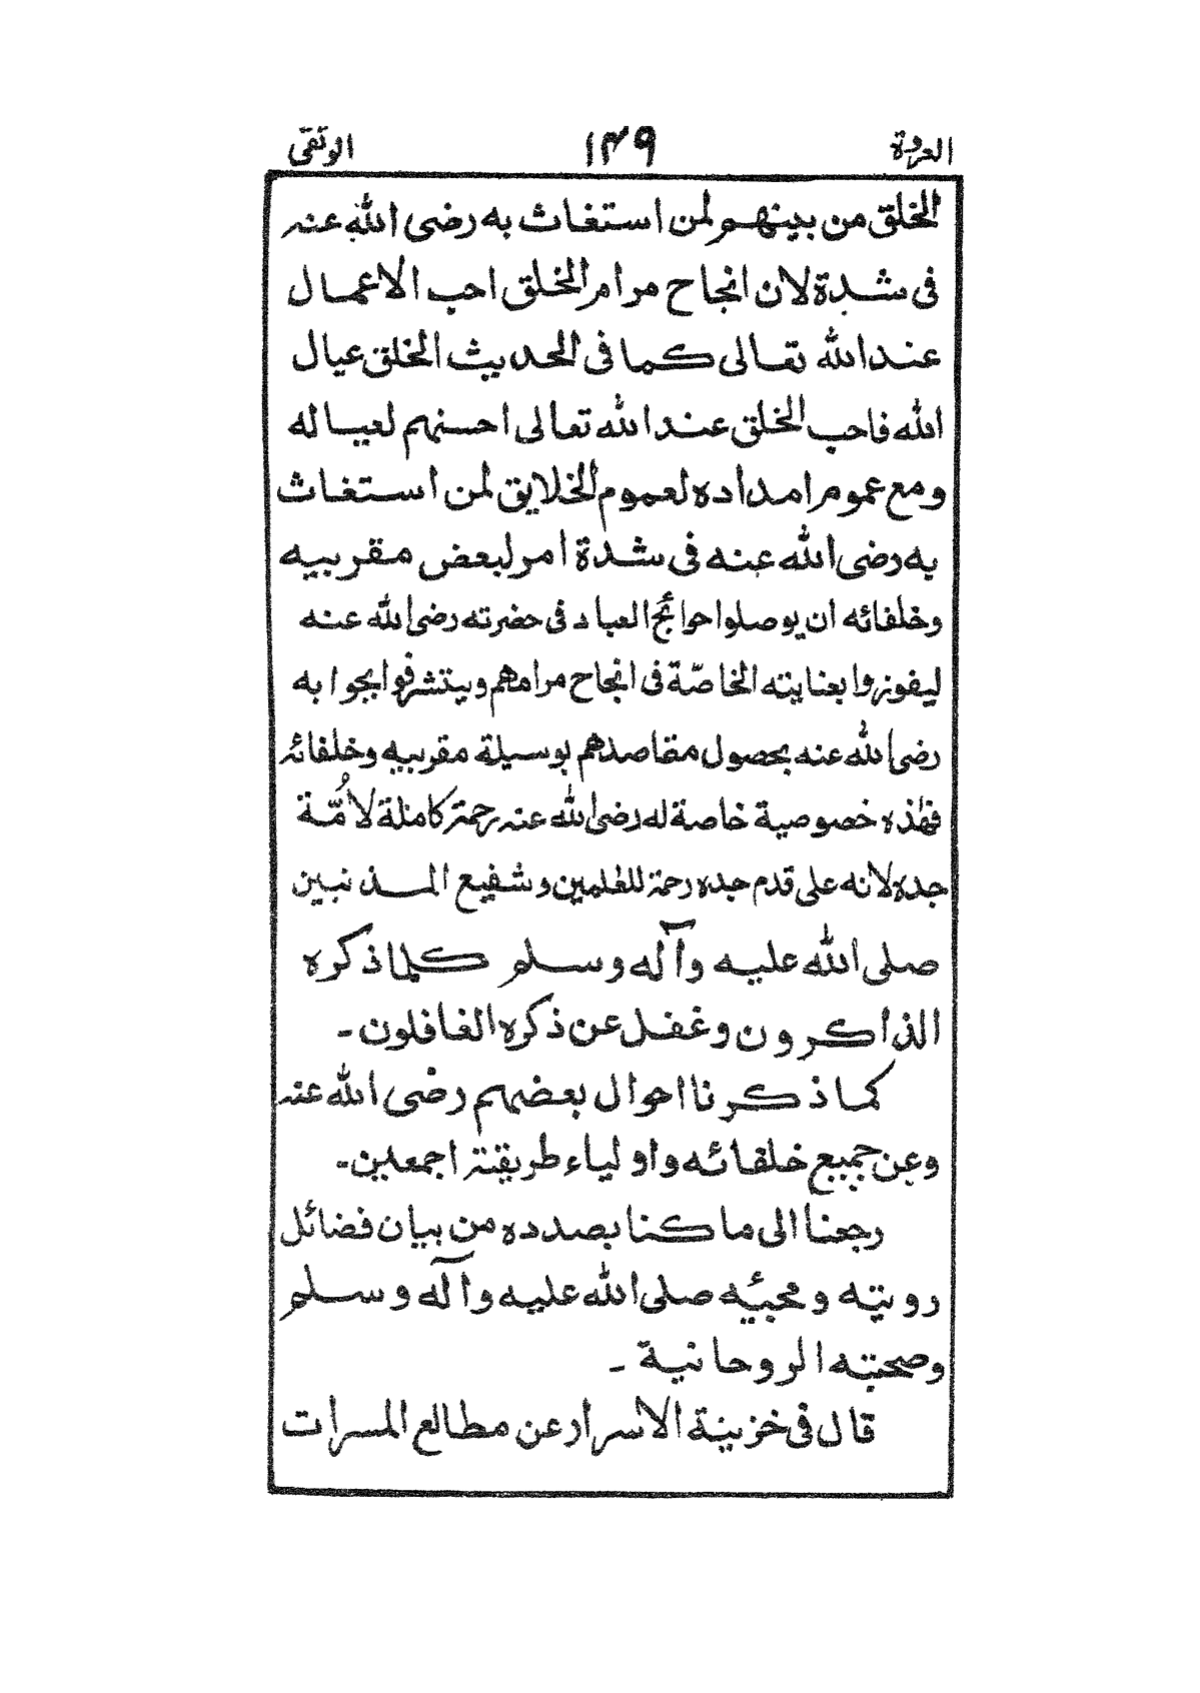 العروة ١٤٩ الوثقى
الخلق من بينهم لمن استغاث به رضى الله عنه
فى شدة لان انجاح مرام الخلق احب الاعمال
عند الله تعالى كما فى الحديث الخلق عيال
الله فاحب الخلق عند الله تعالى احسنهم لعياله
ومع عموم امداده لعموم الخلايق لمن استغاث
به رضى الله عنه فى شدة امر لبعض مقربيه
وخلفائه ان يوصلوا حوائج العباد فى حضرته رضى الله عنه
ليفوزوا بعنايته الخاصّة فى انجاح مرامهم ويتشرفوا بجوابه
رضى الله عنه بحصول مقاصدهم بوسيلة مقربيه وخلفائه
فهٰذه خصوصية خاصة له رضى الله عنه رحمة كاملة لاُمّة
جده لانه على قدم جده رحمة للعٰلمين وشفيع المذنبين
صلى الله عليه وآله وسلم كلما ذكره
الذاكرون وغفل عن ذكره الغافلون ـ
كما ذكرنا احوال بعضهم رضى الله عنه
وعن جميع خلفائه واولياء طريقته اجمعين ـ
رجعنا الى ما كنا بصدده من بيان فضائل
رويته ومحبئيه صلى الله عليه وآله وسلم
وصحبته الروحانية ـ
قال فى خزينة الاسرار عن مطالع المسرات